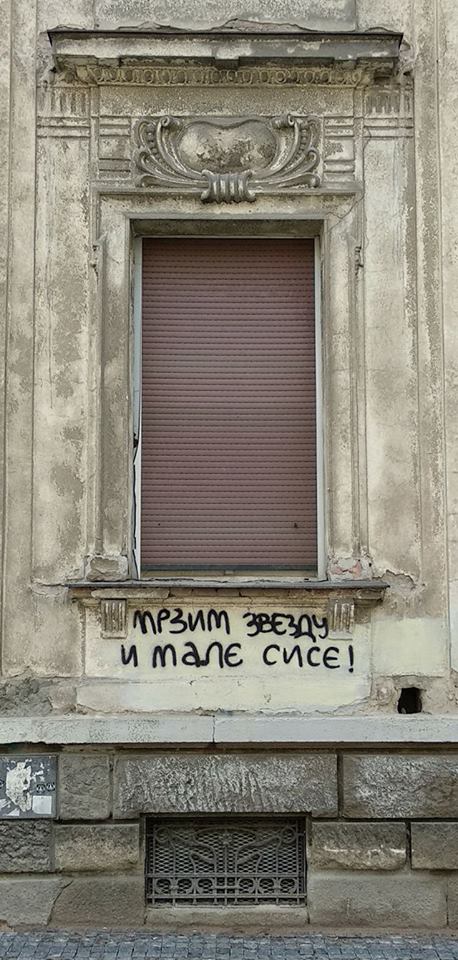 мрзим звезду
и мале сисе!